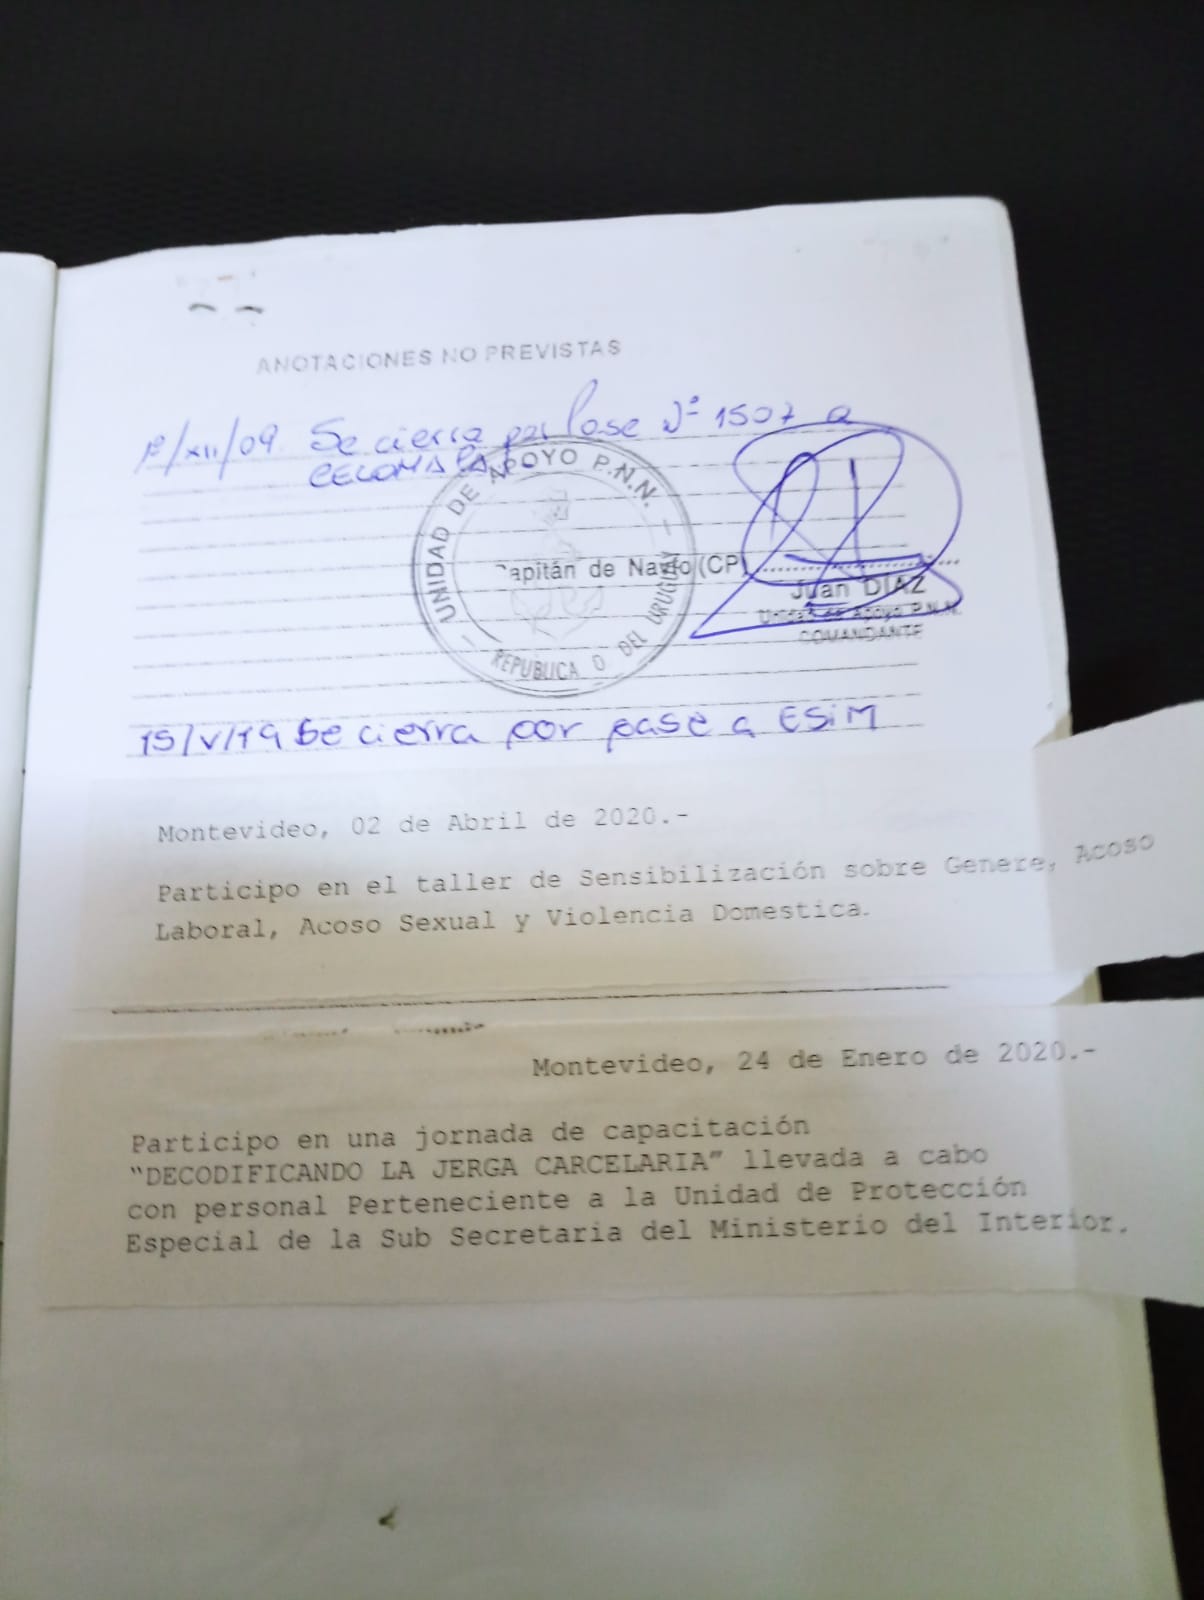 ANOTACIONES NO PREVISTAS
1º/XII/09. Se cierra por Pase Nº 1507 a
UNIDAD DE APOYO P.N.N.
REPUBLICA O. DEL URUGUAY
Capitán de Navío (CP)
Juan DIAZ
Unidad de Apoyo P.N.N.
COMANDANTE
15/V/19 Se cierra por pase a ESIM
Montevideo, 02 de Abril de 2020.-
Participo en el taller de Sensibilización sobre Genere, Acoso
Laboral, Acoso Sexual y Violencia Domestica.
Montevideo, 24 de Enero de 2020.-
Participo en una jornada de capacitación
“DECODIFICANDO LA JERGA CARCELARIA” llevada a cabo
con personal Perteneciente a la Unidad de Protección
Especial de la Sub Secretaria del Ministerio del Interior.